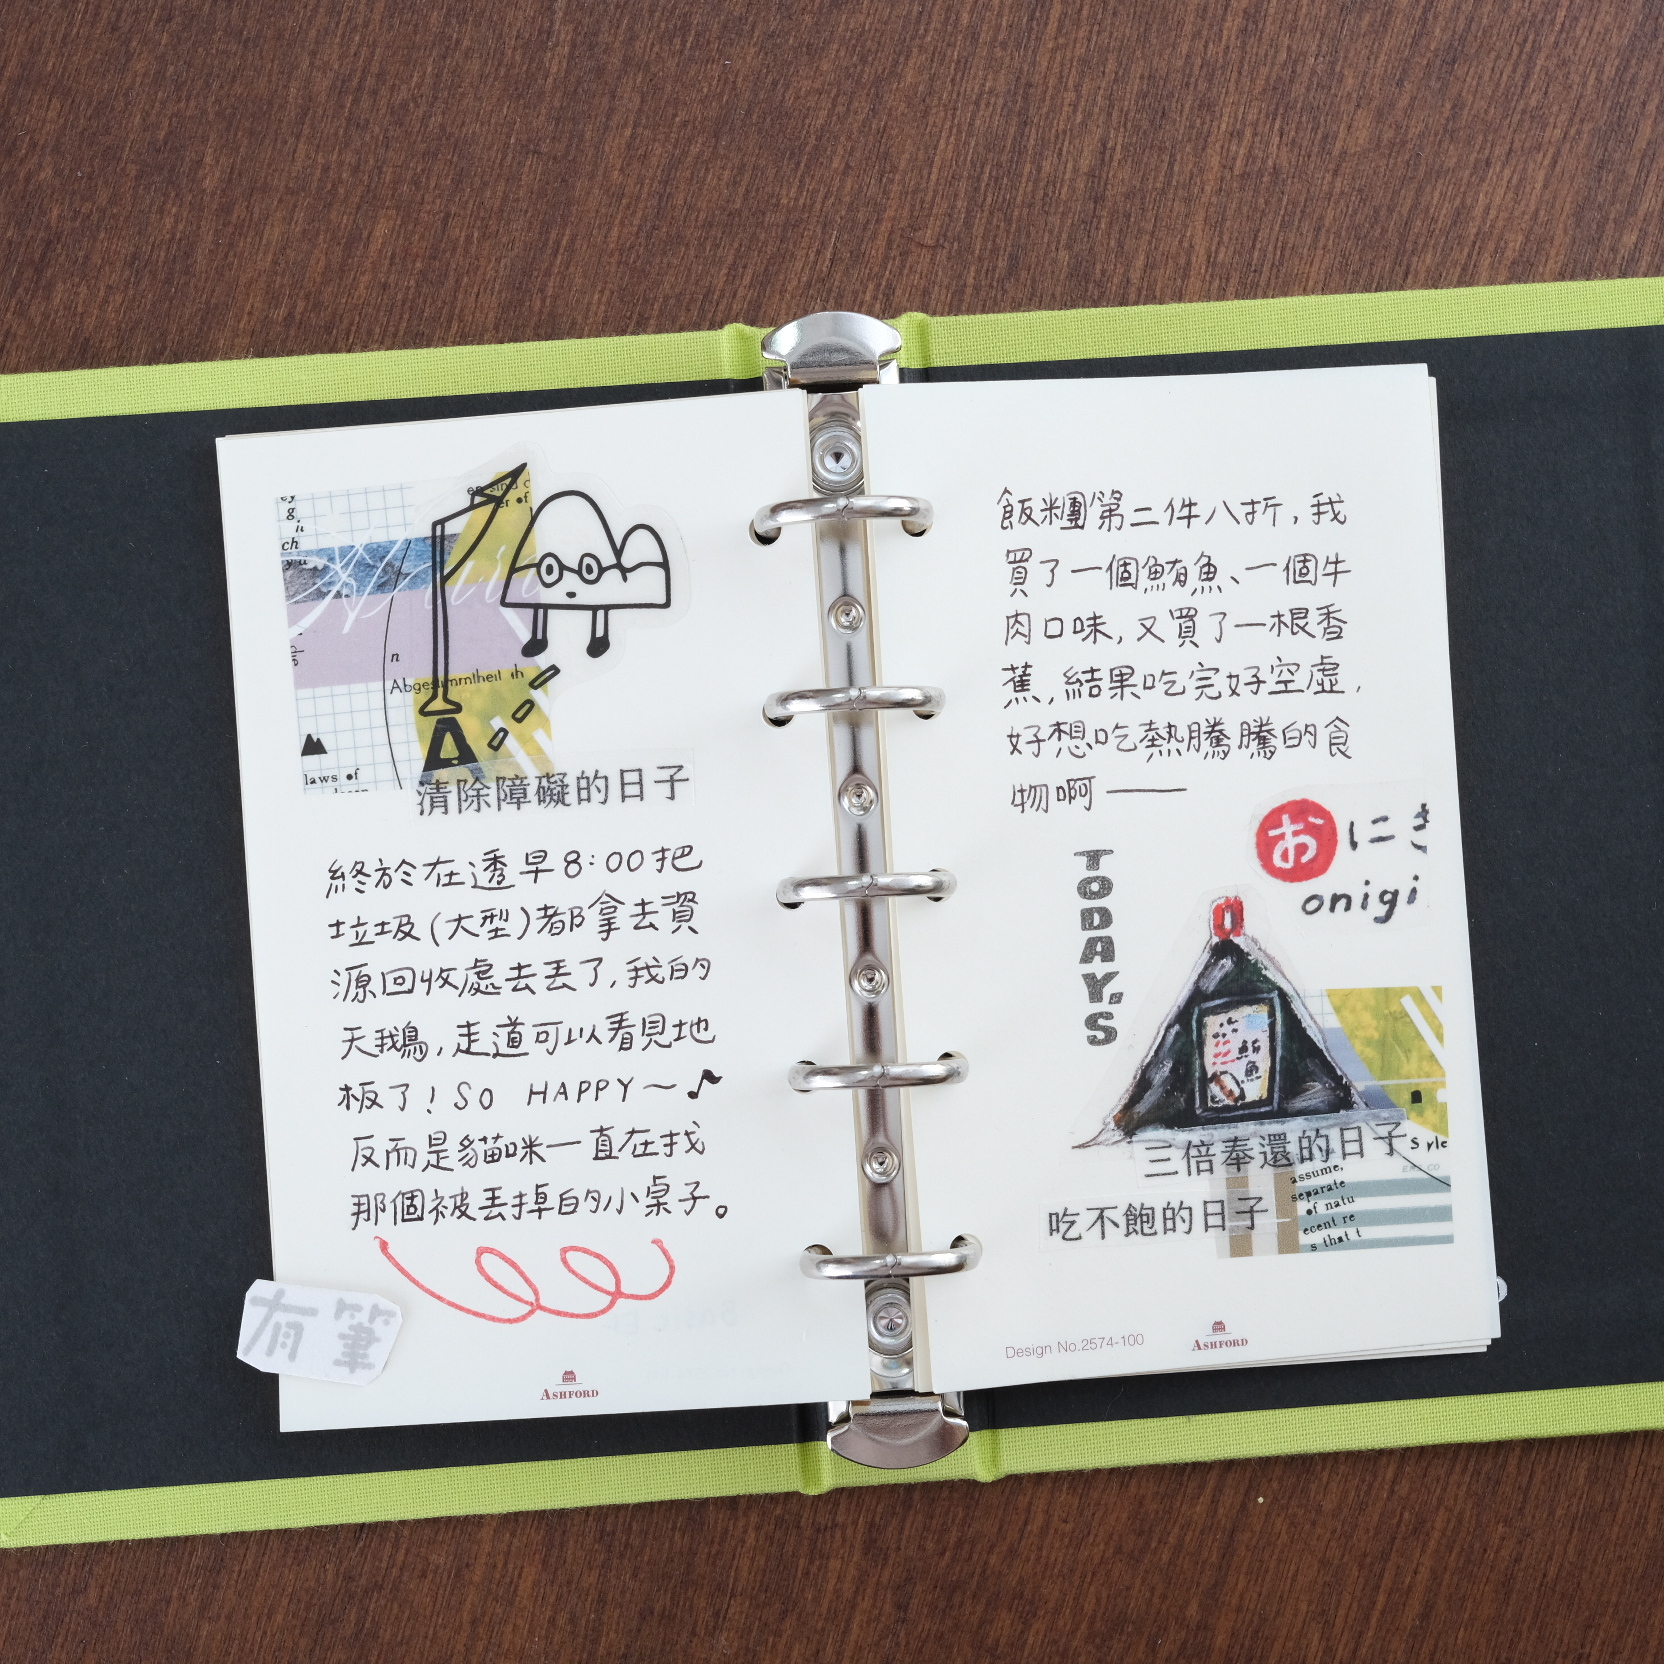 ch
n
Abgestimmtheit ih
laws of
清除障礙的日子
終於在透早8:00把
垃圾(大型)都拿去資
源回收處去丟了,我的
天鵝,走道可以看見地
板了!SO HAPPY～♪
反而是貓咪一直在找
那個被丟掉的小桌子。
有筆
ASHFORD
飯糰第二件八折,我
買了一個鮪魚、一個牛
肉口味,又買了一根香
蕉,結果吃完好空虛,
好想吃熱騰騰的食
物啊——
おにき
onigi
TODAY,S
鮪魚
三倍奉還的日子
吃不飽的日子
assume,
separate
of natu
ecent re
s that t
Design No.2574-100
ASHFORD